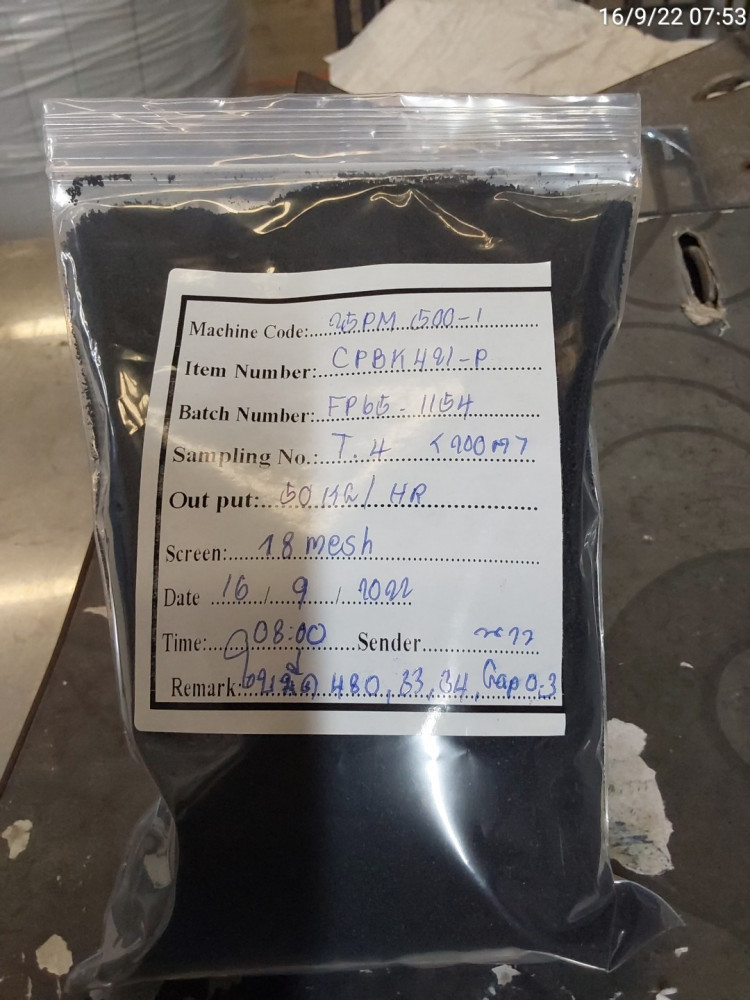 16/9/22 07:53
Machine Code: 25PM 500-1
Item Number: CPBK421-P
Batch Number: FP65-1154
Sampling No.: T.4
Out put: 50 KG/HR
Screen: 18 mesh
Date 16 / 9 / 2022
Time: 08:00 Sender
Remark: ใบมีด 480, 33, 34, Gap 0.3